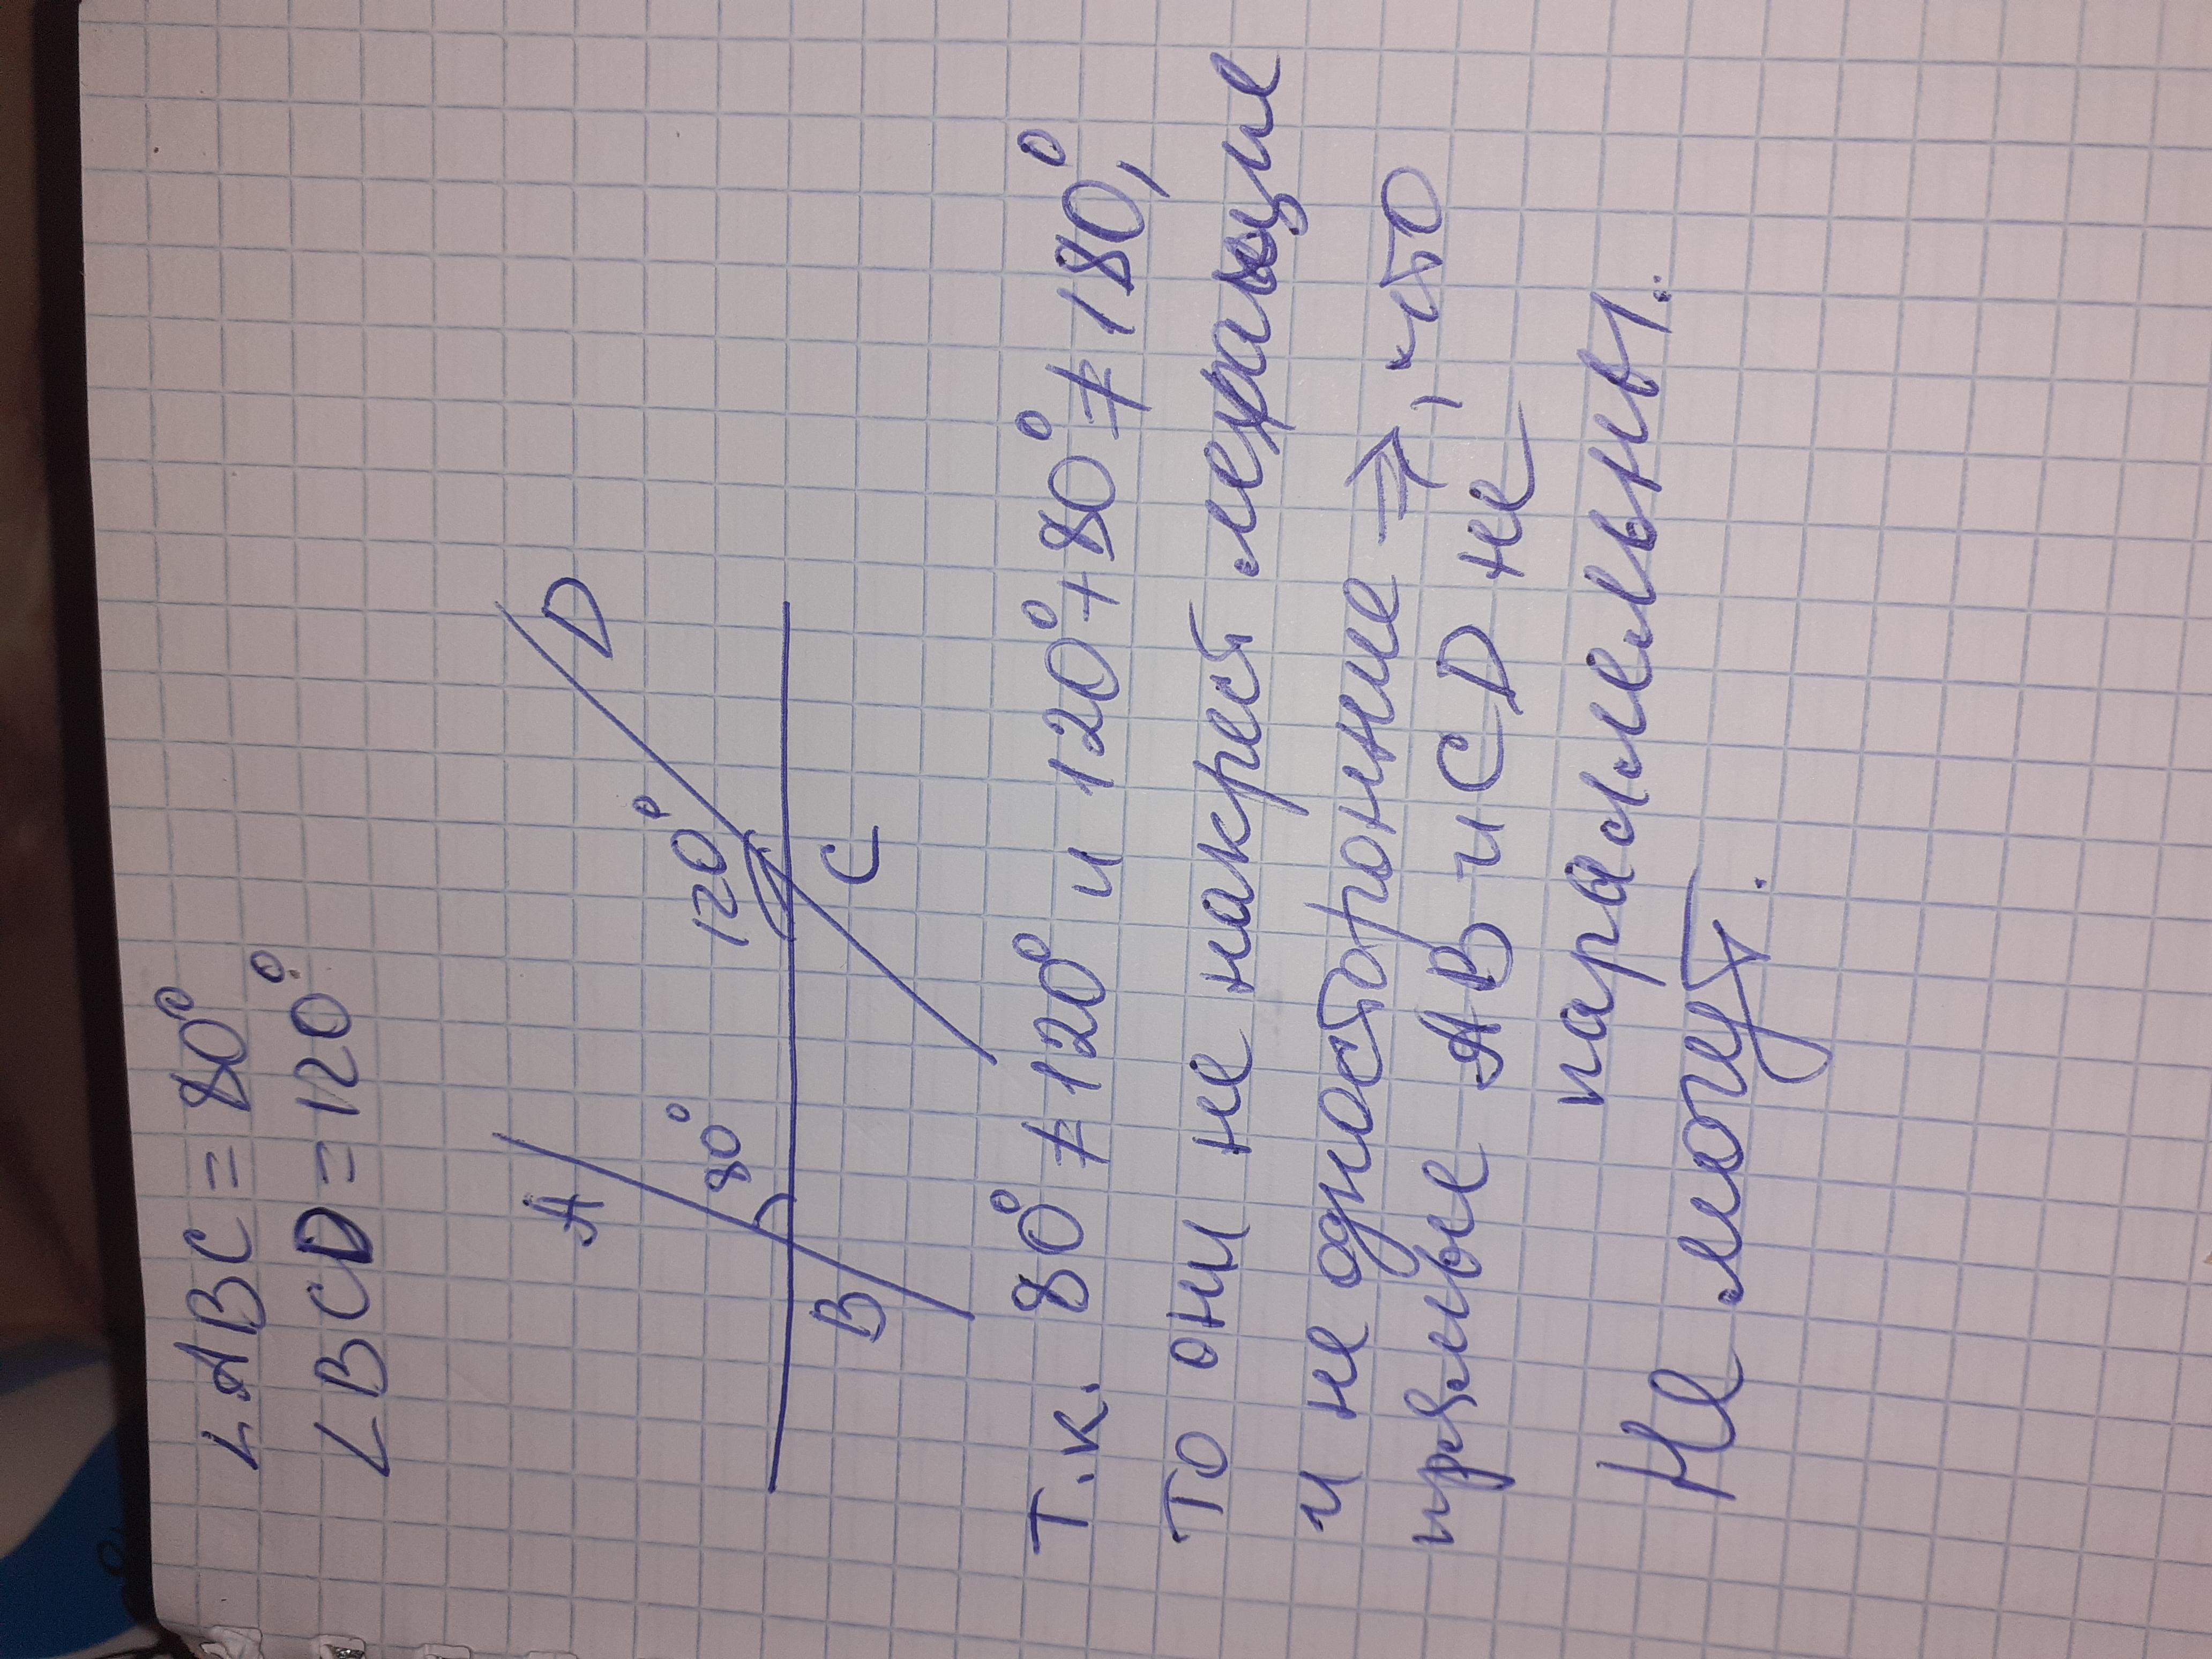 ∠ABC = 80°
∠BCD = 120°
A
D
80°
120°
B
C
Т.к. 80° ≠ 120° и 120° + 80° ≠ 180°,
То они не накрест лежащие
и не односторонние ⇒, что
прямые AB и CD не
паралельны.
Не могут.